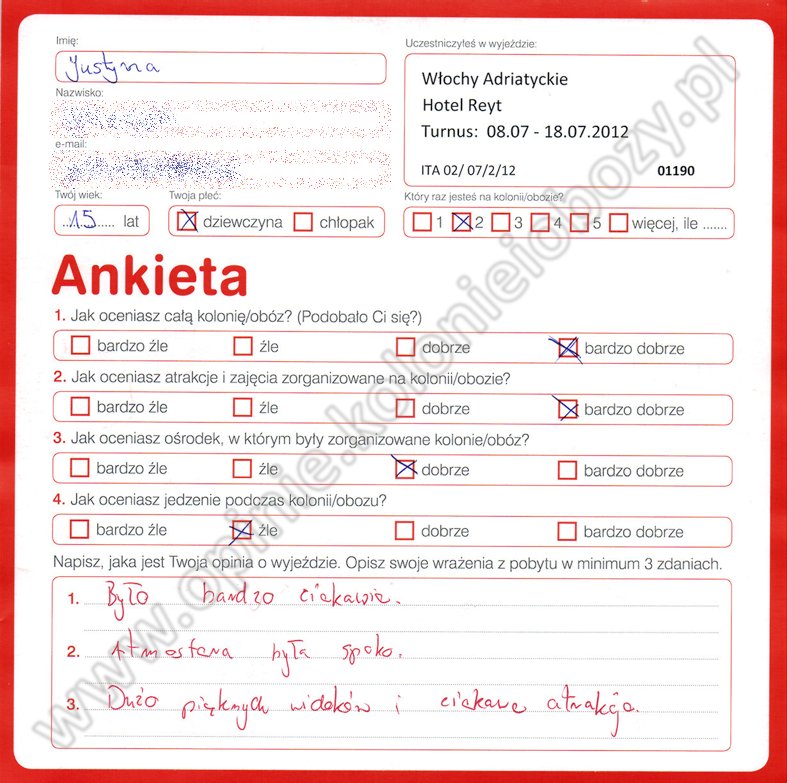 Imię:
Justyna
Nazwisko:
e-mail:
Uczestniczyłeś w wyjeździe:
Włochy Adriatyckie
Hotel Reyt
Turnus: 08.07 - 18.07.2012
ITA 02/ 07/2/12 01190
Twój wiek:
15 lat
Twoja płeć:
dziewczyna chłopak
Który raz jesteś na kolonii/obozie?
1 2 3 4 5 więcej, ile .......
Ankieta
1. Jak oceniasz całą kolonię/obóz? (Podobało Ci się?)
bardzo źle źle dobrze bardzo dobrze
2. Jak oceniasz atrakcje i zajęcia zorganizowane na kolonii/obozie?
bardzo źle źle dobrze bardzo dobrze
3. Jak oceniasz ośrodek, w którym były zorganizowane kolonie/obóz?
bardzo źle źle dobrze bardzo dobrze
4. Jak oceniasz jedzenie podczas kolonii/obozu?
bardzo źle źle dobrze bardzo dobrze
Napisz, jaka jest Twoja opinia o wyjeździe. Opisz swoje wrażenia z pobytu w minimum 3 zdaniach.
1. Było bardzo ciekawie.
2. Atmosfera była spoko.
3. Dużo pięknych widoków i ciekawe atrakcje.
www.opinie.kolonieiobozy.pl